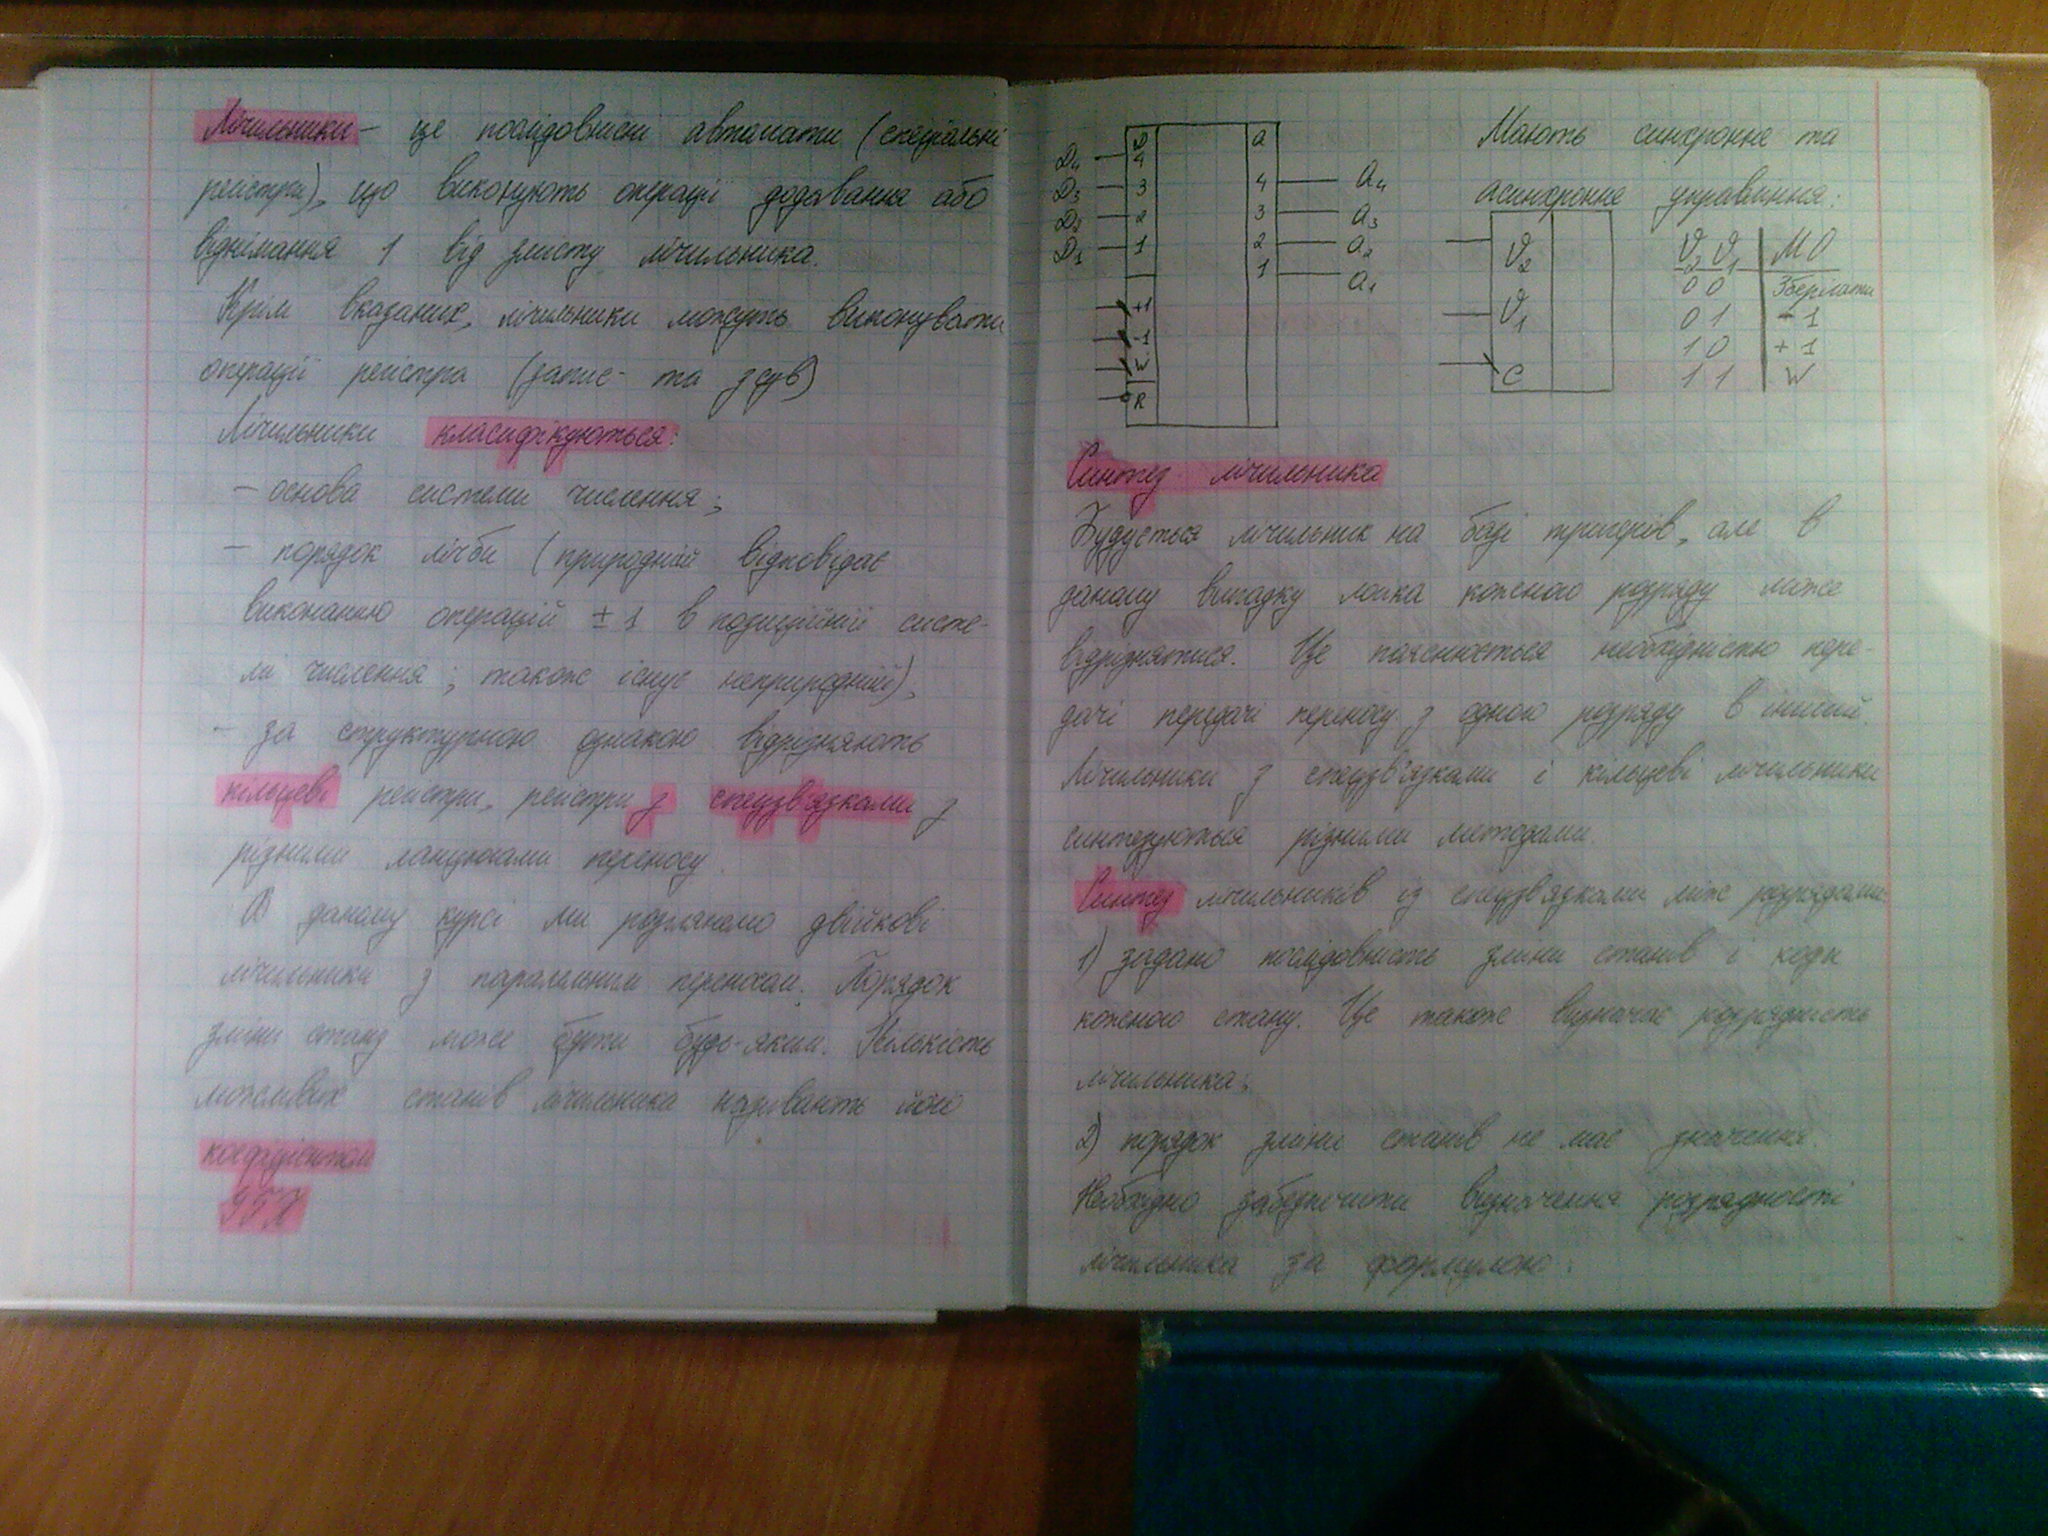 Лічильники – це послідовнісні автомати (спеціальні
регістри), що виконують операції додавання або
віднімання 1 від змісту лічильника.
Крім вказаних, лічильники можуть виконувати
операції регістра (запис та зсув)
Лічильники класифікуються:
– основа системи числення;
– порядок лічби (природній відповідає
виконанню операцій ± 1 в позиційній систе-
мі числення; також існує неприродній),
– за структурною ознакою відрізняють
кільцеві регістри, регістри з спецзв'язками з
різними ланцюгами переносу.
В даному курсі ми розглянемо двійкові
лічильники з паралельним переносом. Порядок
зміни стану може бути будь-яким. Кількість
можливих станів лічильника називають його
коефіцієнтом
D a
D4 4 4 a4
D3 3 3 a3
D2 2 2 a2
D1 1 1 a1
+1
-1
W
R
Мають синхронне та
асинхронне управління:
V2
V1
C
V2 V1 МО
0 0 Зберігати
0 1 - 1
1 0 + 1
1 1 W
Синтез лічильника
Будується лічильник на базі тригерів, але в
даному випадку логіка кожного розряду може
відрізнятися. Це пояснюється необхідністю пере-
дачі передачі переносу з одного розряду в інший.
Лічильники з спецзв'язками і кільцеві лічильники
синтезуються різними методами.
Синтез лічильників із спецзв'язками між розрядами
1) задано послідовність зміни станів і коди
кожного стану. Це також визначає розрядність
лічильника;
2) порядок зміни станів не має значення.
Необхідно забезпечити визначення розрядності
лічильника за формулою: